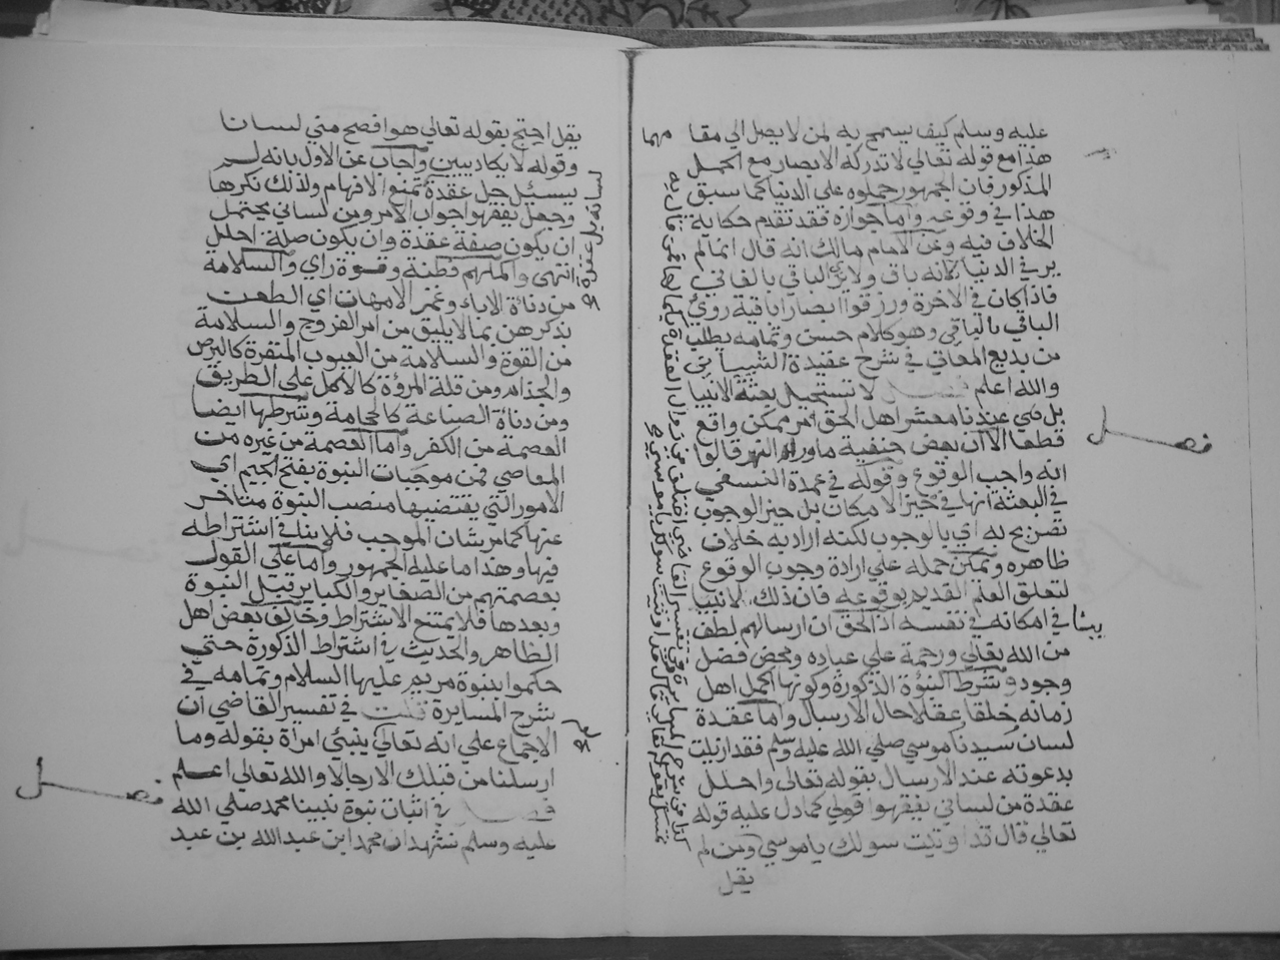 عليه وسلم كيف يسمح به لمن لا يصل الي مقا
مهما
هذا مع قوله تعالي لا تدركه الابصار مع الحمل
المذكور فان الجمهور حملوه علي الدنيا كما سبق
هذا في وقوعه واما جوازه فقد تقدم حكاية
الخلاف فيه وعن الامام مالك انه قال انما لم
ير في الدنيا لانه باق ولا يرى الباقي بالفاني
فاذا كان في الاخرة ورزقوا ابصارا باقية روئ
الباقي بالباقي وهو كلام حسن وتمامه يطلب
من بديع المعاني في شرح عقيدة الشيباني
والله اعلم فصل لا تستحيل بعثة الانبيا
بل هي عندنا معشر اهل الحق امر ممكن واقع
فصل
قطعا الا ان بعض حنفية ماوراء النهر قالوا
انه واجب الوقوع وقوله في عمدة النسفي
في البعثة انها في حيز الامكان بل حيز الوجوب
تصريح به اي بالوجوب لكنه اراد به خلاف
ظاهره ويمكن حمله علي ارادة وجوب الوقوع
لتعلق العلم القديم بوقوعه فان ذلك لا ينبيا
في امكانه في نفسه اذ الحق ان ارسالهم لطف
من الله تعالي ورحمة علي عباده ومحض فضل
وجود وشرط النبؤة الذكورة وكونه اكمل اهل
زمانه خلقا وعقلا حال الارسال واما عقدة
لسان سيدنا موسي صلي الله عليه وسلم فقد ازيلت
بدعوته عند الارسال بقوله تعالى واحلل
عقدة من لساني يفقهوا قولي كما دل عليه قوله
تعالي قال قد اوتيت سولك يا موسي ومن لم
يقل
يقل احتج بقوله تعالي هو افصح مني لسانا
وقوله لا يكاد يبين واجاب عن الاول بانه لم
يسئل حل عقدة تمنع الافهام ولذلك نكرها
وجعل يفقهوا جواب الامر ومن لساني يحتمل
ان يكون صفة عقدة وان يكون صلة احلل
انتهى واكملهم فطنة وقوة راي والسلامة
من دناءة الاباء وغمز الامهات اي الطعن
بذكرهن بما لا يليق من امر الفروج والسلامة
من القوة والسلامة من العيوب المنفرة كالبرص
والجذام ومن قلة المروؤة كالاكل على الطريق
ومن دناءة الصناعة كالحجامة وشرطها ايضا
العصمة من الكفر واما العصمة من غيره من
المعاصي فمن موجبات النبوة بفتح الجيم اي
الامور التي يقتضيها منصب النبوة متاخر
عنها كما مر بشان الموجب فلا ينافي اشتراطه
فيها وهذا ما عليه الجمهور واما على القول
بعصمتهم من الصغاير والكباير قبل النبوة
وبعدها فلا يمتنع الاشتراط وخالف بعض اهل
الظاهر والحديث في اشتراط الذكورة حتي
حكموا بنبوة مريم عليها السلام وتمامه في
شرح المسايرة قلت في تفسير القاضي ان
الاجماع علي انه تعالي لم ينبئ امراة بقوله وما
ارسلنا من قبلك الا رجالا والله تعالي اعلم
فصل
فصل في اثبات نبوة نبينا محمد صلي الله
عليه وسلم نشهد ان محمدا ابن عبد الله بن عبد